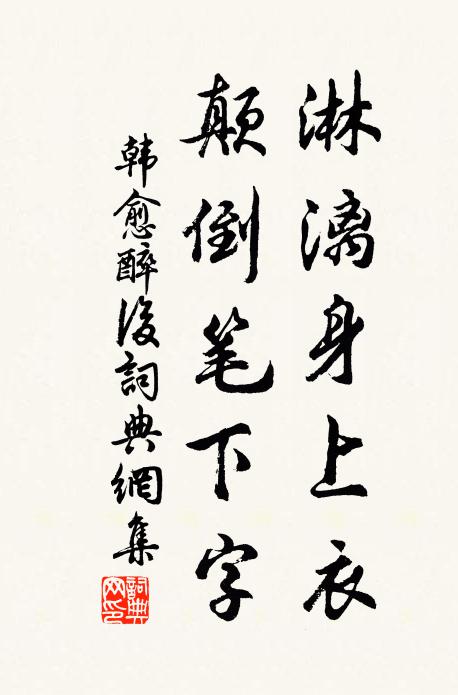 淋漓身上衣
颠倒笔下字
韩愈醉後詞典網集
詞典網印